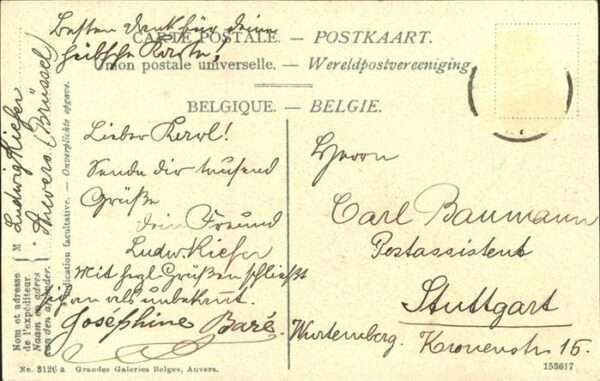 Besten Dank für deine
hübsche Karte!
CARTE POSTALE. — POSTKAART.
Union postale universelle. — Wereldpostvereeniging
BELGIQUE. — BELGIE.
Nom et adresse
de l'expéditeur.
Naam en adres
van den afzender.
M Ludwig Kiefer
Anvers. (Brüssel)
(Indication facultative. — Onverplichte opgave.
Lieber Karl!
Sende dir tausend
Grüße
dein Freund
Ludw. Kiefer
Mit herzl. Grüßen schließt
sich an als unbekannt.
Joséphine Baré.
Herrn
Carl Baumann
Postassistent
Stuttgart
Wurtemberg. Kronenstr. 15.
No. 3126 a Grandes Galeries Belges, Anvers.
153617